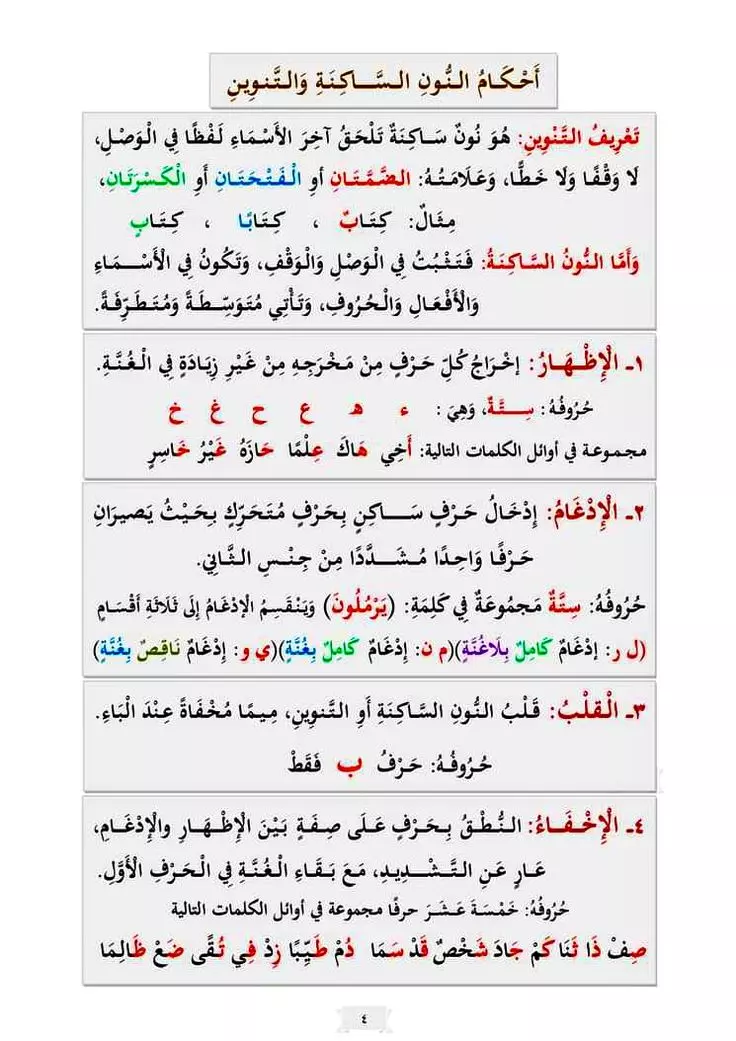 أَحْكَامُ النُّونِ السَّاكِنَةِ وَالتَّنوِينِ
تَعْرِيفُ التَّنْوِينِ: هُوَ نُونٌ سَاكِنَةٌ تَلْحَقُ آخِرَ الأَسْمَاءِ لَفْظًا فِي الْوَصْلِ،
لَا وَقْفًا وَلَا خَطًّا، وَعَلَامَتُهُ: الضَّمَّتَانِ أوِ الْفَتْحَتَانِ أَوِ الْكَسْرَتَانِ،
مِثَالٌ: كِتَابٌ ، كِتَابًا ، كِتَابٍ
وَأَمَّا النُّونُ السَّاكِنَةُ: فَتَثْبُتُ فِي الْوَصْلِ وَالْوَقْفِ، وَتَكُونُ فِي الْأَسْمَاءِ
وَالْأَفْعَالِ وَالْحُرُوفِ، وَتَأْتِي مُتَوَسِّطَةً وَمُتَطَرِّفَةً.
١ـ الْإِظْهَارُ: إخْرَاجُ كُلِّ حَرْفٍ مِنْ مَخْرَجِهِ مِنْ غَيْرِ زِيَادَةٍ فِي الْغُنَّةِ.
حُرُوفُهُ: سِتَّةٌ، وَهِيَ: ء ه ع ح غ خ
مجموعة في أوائل الكلمات التالية: أَخِي هَاكَ عِلْمًا حَازَهُ غَيْرُ خَاسِرٍ
٢ـ الْإِدْغَامُ: إِدْخَالُ حَرْفٍ سَاكِنٍ بِحَرْفٍ مُتَحَرِّكٍ بِحَيْثُ يَصيرَانِ
حَرْفًا وَاحِدًا مُشَدَّدًا مِنْ جِنْسِ الثَّانِي.
حُرُوفُهُ: سِتَّةٌ مَجْمُوعَةٌ فِي كَلِمَةِ: (يَرْمُلُونَ) وَيَنْقَسِمُ الإِدْغَامُ إِلَى ثَلَاثَةِ أَقْسَامٍ
(ل ر: إدْغَامٌ كَامِلٌ بِلَاغُنَّةٍ)(م ن: إِدْغَامٌ كَامِلٌ بِغُنَّةٍ)(ي و: إِدْغَامٌ نَاقِصٌ بِغُنَّةٍ)
٣ـ الْقلْبُ: قَلْبُ النُّونِ السَّاكِنَةِ أَوِ التَّنوِينِ، مِيمًا مُخْفَاةً عِنْدَ الْبَاءِ.
حُرُوفُهُ: حَرْفُ ب فَقَطْ
٤ـ الْإِخْفَاءُ: النُّطْقُ بِحَرْفٍ عَلَى صِفَةٍ بَيْنَ الْإِظْهَارِ والْإِدْغَامِ،
عَارٍ عَنِ التَّشْدِيدِ، مَعَ بَقَاءِ الْغُنَّةِ فِي الْحَرْفِ الْأَوَّلِ.
حُرُوفُهُ: خَمْسَةَ عَشَرَ حرفًا مجموعة في أوائل الكلمات التالية
صِفْ ذَا ثَنَا كَمْ جَادَ شَخْصٌ قَدْ سَمَا دُمْ طَيِّبًا زِدْ فِي تُقًى ضَعْ ظَالِمَا
٤